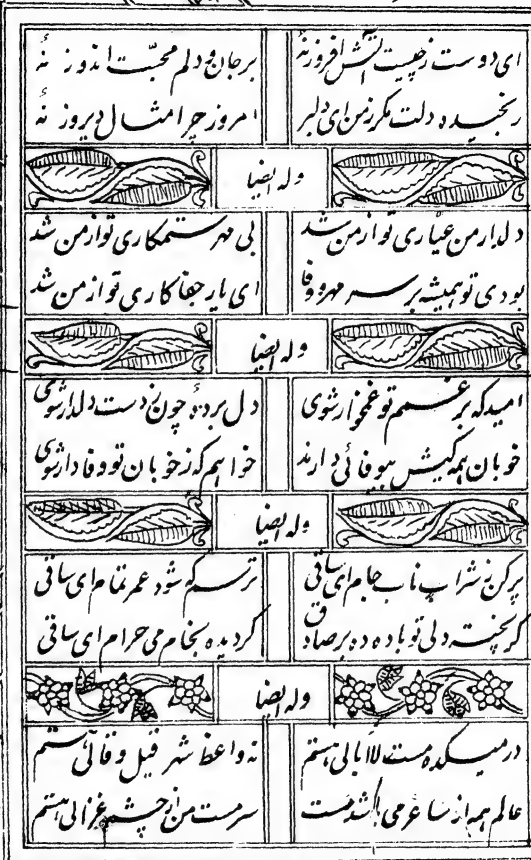 ای دوست ز چیست آتش افروز نهٔ
بر جان و دلم محبت اندوز نهٔ
رنجیده دلت مگر ز من ای دلبر
امروز چرا مثال دیروز نهٔ
وله ایضا
دلدار من عیاری تو از من شد
بی مهر ستمکاری تو از من شد
بودی تو همیشه بر سر مهر و وفا
ای یار جفا کاری تو از من شد
وله ایضا
امید که بر غم تو غمخوار شوی
دل بردهٔ چون ز دست دلدار شوی
خوبان همه کیش بیوفائی دارند
خواهم که ز خوبان تو وفادار شوی
وله ایضا
پر کن ز شراب ناب جام ای ساقی
ترسم که شود عمر تمام ای ساقی
گر پخته دلی تو باده ده بر صادق
گردیده بخام می حرام ای ساقی
وله ایضا
در میکده مست لاابالی هستم
نه واعظ شهر قیل و قالی هستم
عالم همه از ساغر می شد مست
سرمست من از چشم غزالی هستم